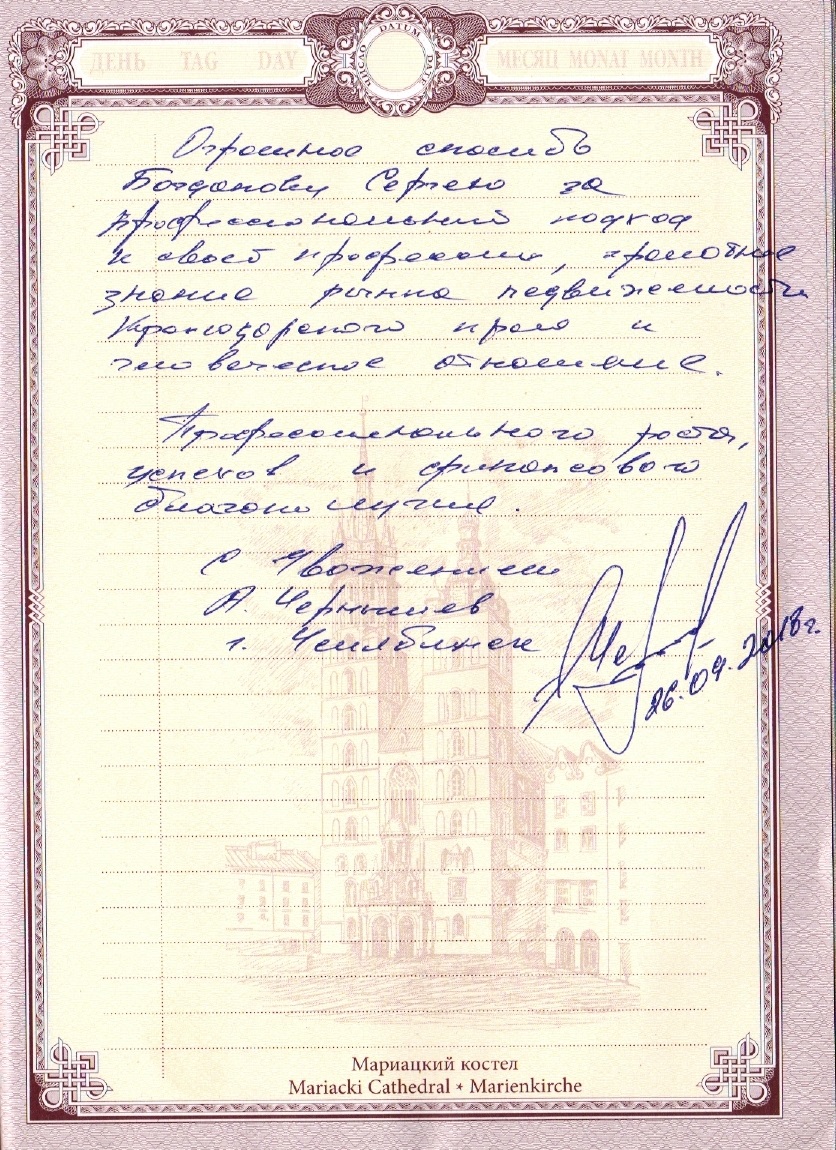 ДЕНЬ TAG DAY
DATUM DATE ЧИСЛО
МЕСЯЦ MONAT MONTH
Огромное спасибо
Богданову Сергею за
профессиональный подход
к своей профессии, грамотное
знание рынка недвижемости
Краснодарского края и
человеческое отношение.
Профессионального роста,
успехов и финансового
благополучия.
С Уважением
А. Чернышев
г. Челябинск
26.09.2018г.
Мариацкий костел
Mariacki Cathedral * Marienkirche